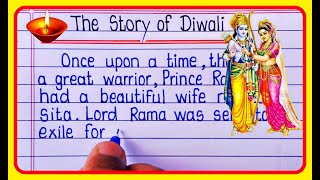 The Story of Diwali
Once upon a time,
a great warrior, Prince
had a beautiful wife
Sita. Lord Rama was
exile for